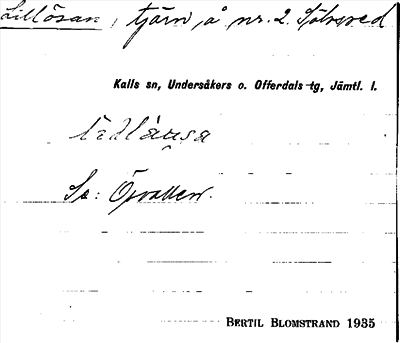 Lillösan, tjärn, å nr. 2. Sölvsved
Kalls sn, Undersåkers o. Offerdals tg, Jämtl. l.
Se: Ösvallen.
BERTIL BLOMSTRAND 1935